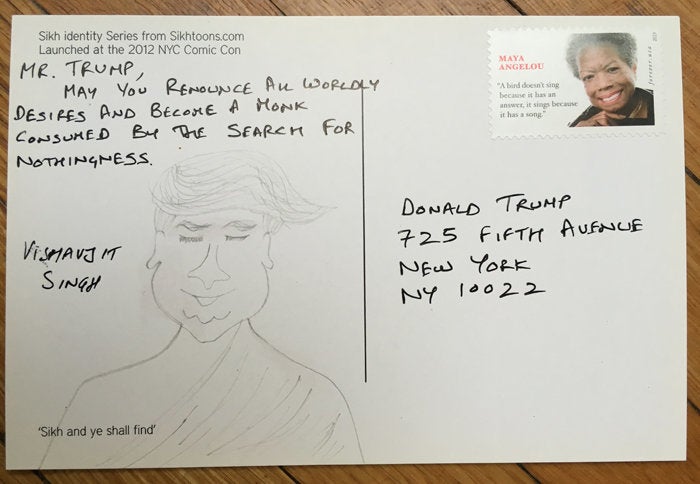 Sikh identity Series from Sikhtoons.com
Launched at the 2012 NYC Comic Con
MR. TRUMP,
MAY YOU RENOUNCE ALL WORLDLY
DESIRES AND BECOME A MONK
CONSUMED BY THE SEARCH FOR
NOTHINGNESS.
VISHAVJIT
SINGH
'Sikh and ye shall find'
MAYA
ANGELOU
"A bird doesn't sing
because it has an
answer, it sings because
it has a song."
DONALD TRUMP
725 FIFTH AVENUE
NEW YORK
NY 10022